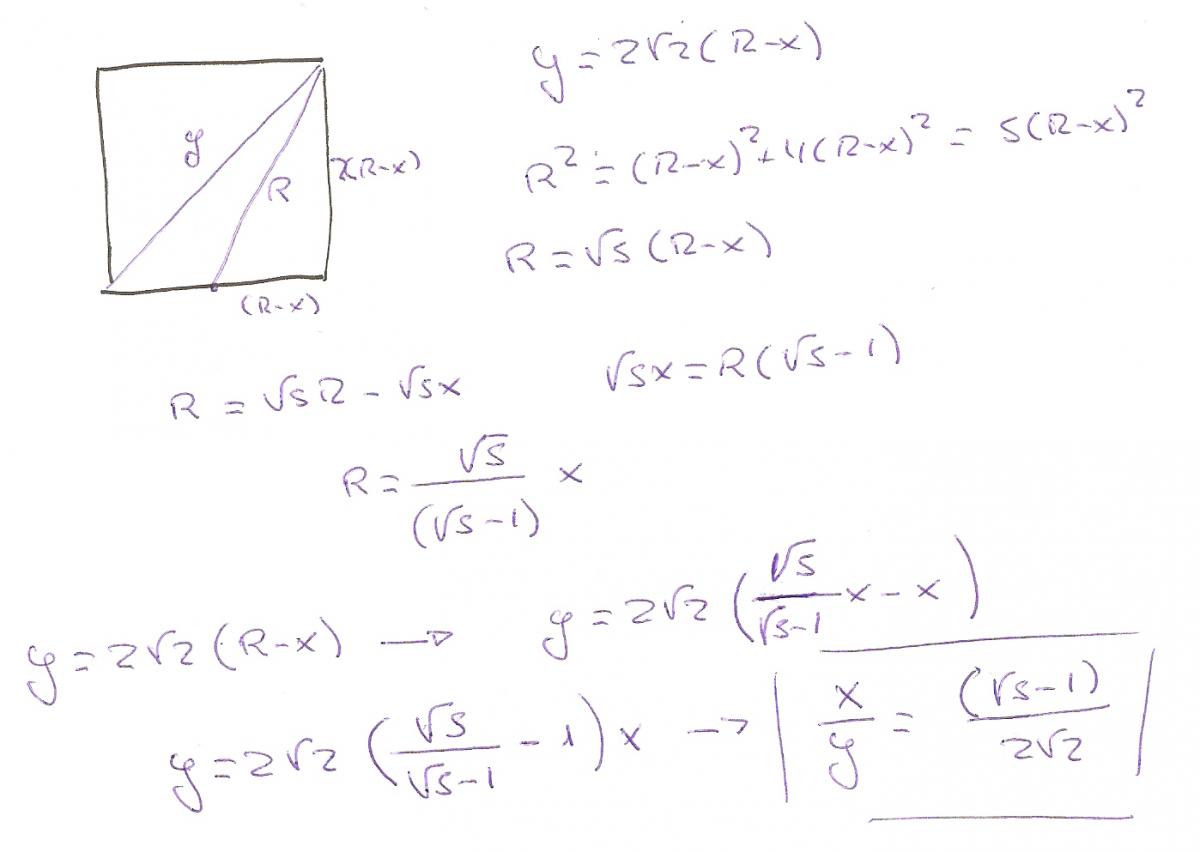 y = 2√2 (R-x)
y
R
2(R-x)
(R-x)
R² = (R-x)² + 4(R-x)² = 5(R-x)²
R = √5 (R-x)
R = √5R - √5x
√5x = R(√5-1)
R = √5/(√5-1) x
y = 2√2 (R-x) → y = 2√2 (√5/(√5-1) x - x)
y = 2√2 (√5/(√5-1) - 1) x → | x/y = (√5-1)/2√2 |